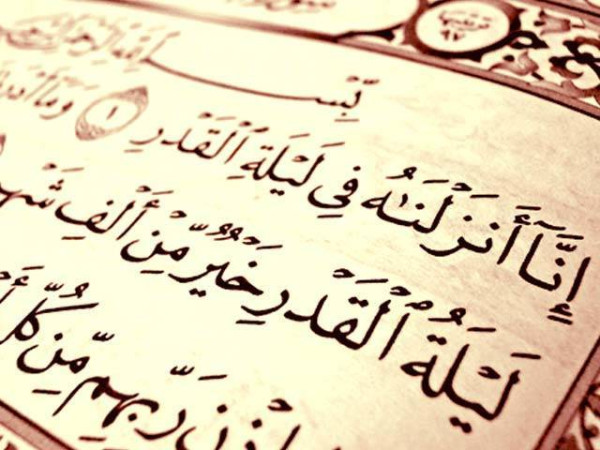 بِسْمِ ٱللَّهِ ٱلرَّحْمَٰنِ ٱلرَّحِيمِ
إِنَّآ أَنزَلْنَٰهُ فِى لَيْلَةِ ٱلْقَدْرِ ١ وَمَآ أَدْرَ
لَيْلَةُ ٱلْقَدْرِ خَيْرٌ مِّنْ أَلْفِ شَهْ
رَبِّهِم مِّن كُلِّ